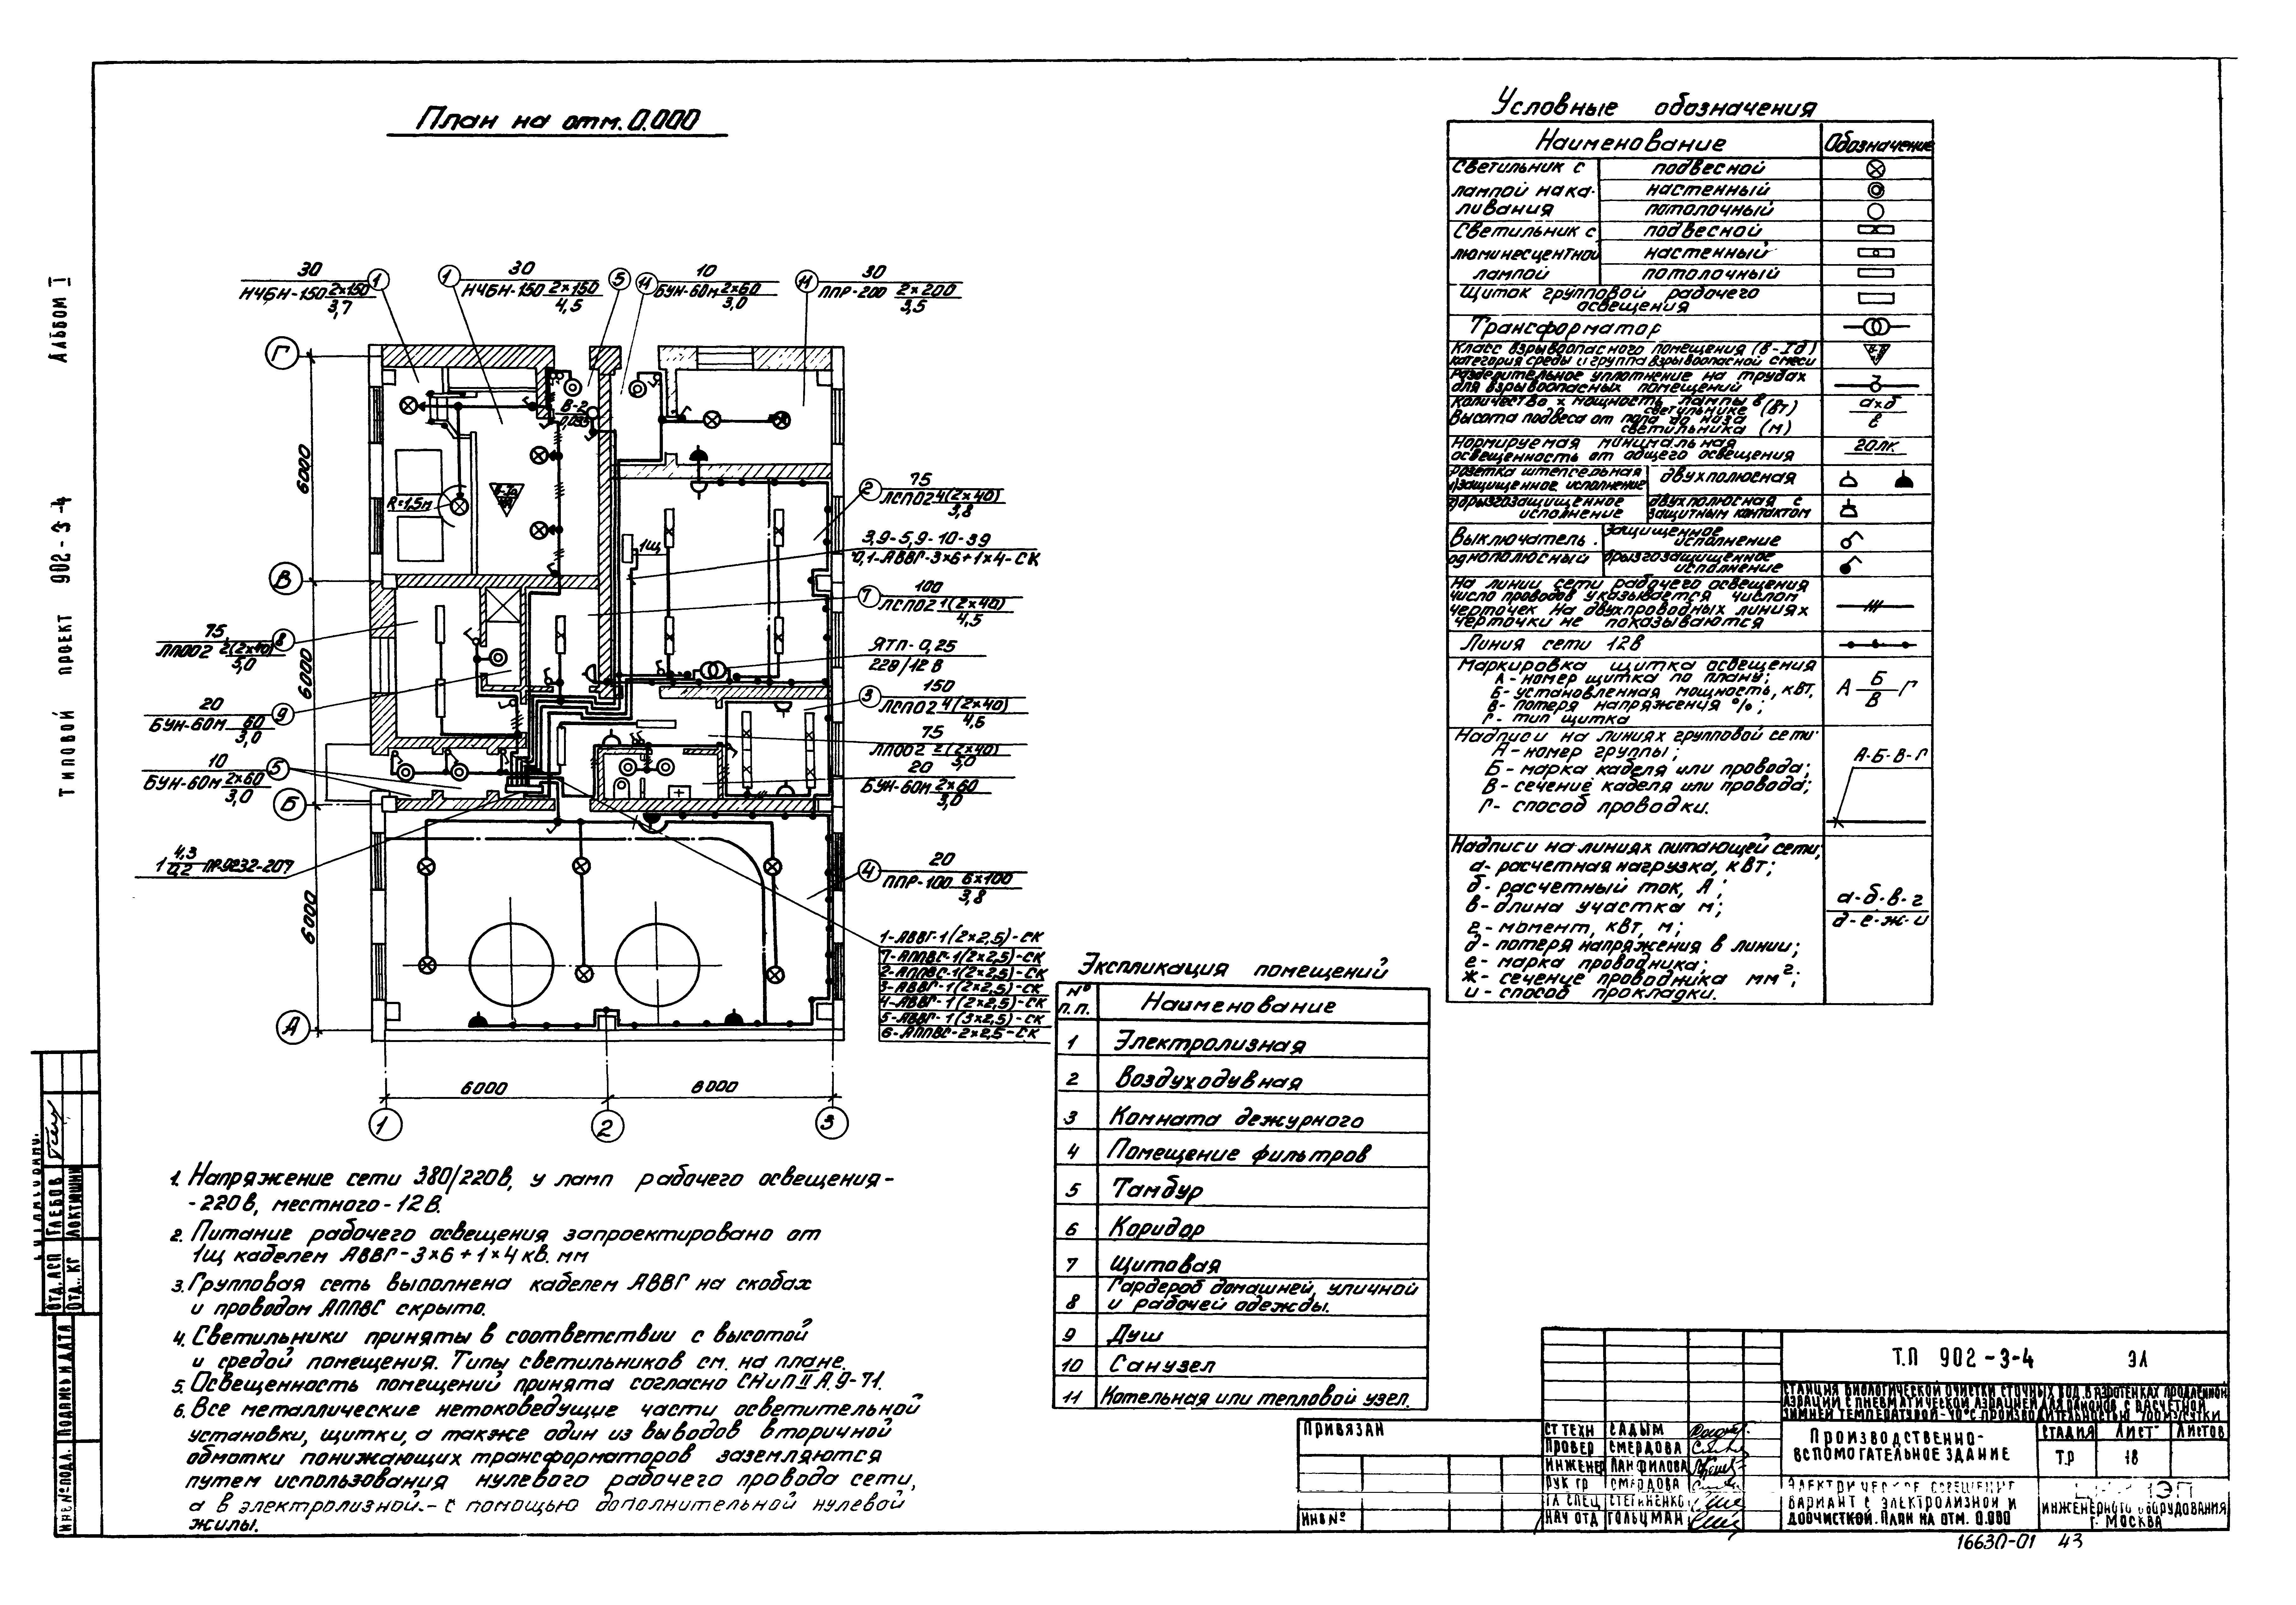 Альбом I
Типовой проект 902-3-4
План на отм. 0.000
30
НЧБН-150 2×150
3,7
1
1
30
НЧБН-150 2×150
4,5
5
11
10
БУН-60м 2×60
3,0
11
30
ППР-200 2×200
3,5
Г
В
Б
А
6000
6000
6000
R=1,5м
В-2
1щ
2
75
ЛСП02 4(2×40)
3,8
3,9-5,9-10-39
0,1-АВВГ-3×6+1×4-СК
7
100
ЛСП02 1(2×40)
4,5
ЯТП-0,25
220/12 В
3
150
ЛСП02 4(2×40)
4,6
75
ЛП002 2(2×40)
5,0
20
БУН-60м 2×60
3,0
75
ЛП002 2(2×40)
5,0
8
20
БУН-60м 60
3,0
9
10
БУН-60м 2×60
3,0
5
1 4,3 ПР-9232-207
0,2
4
20
ППР-100 6×100
3,8
1-АВВГ-1(2×2,5)-СК
7-АППВС-1(2×2,5)-СК
2-АППВС-1(2×2,5)-СК
3-АВВГ-1(2×2,5)-СК
4-АВВГ-1(2×2,5)-СК
5-АВВГ-1(3×2,5)-СК
6-АППВС-2×2,5-СК
6000
6000
1
2
3
1. Напряжение сети 380/220в, у ламп рабочего освещения-
-220в, местного-12В.
2. Питание рабочего освещения запроектировано от
1щ кабелем АВВГ-3×6+1×4 кв. мм
3. Групповая сеть выполнена кабелем АВВГ на скобах
и проводом АППВС скрыто.
4. Светильники приняты в соответствии с высотой
и средой помещения. Типы светильников см. на плане.
5. Освещенность помещений принята согласно СНиП II А.9-71.
6. Все металлические нетоковедущие части осветительной
установки, щитки, а также один из выводов вторичной
обмотки понижающих трансформаторов заземляются
путем использования нулевого рабочего провода сети,
а в электролизной.- с помощью дополнительной нулевой
жилы.
Экспликация помещений
№ п.п. Наименование
1 Электролизная
2 Воздуходувная
3 Комната дежурного
4 Помещение фильтров
5 Тамбур
6 Коридор
7 Щитовая
8 Гардероб домашней, уличной
и рабочей одежды.
9 Душ
10 Санузел
11 Котельная или тепловой узел.
Условные обозначения
Наименование Обозначение
Светильник с лампой накаливания
подвесной
настенный
потолочный
Светильник с люминесцентной лампой
подвесной
настенный
потолочный
Щиток групповой рабочего
освещения
Трансформатор
Класс взрывоопасного помещения (В-Iб)
категория среды и группа взрывоопасной смеси
Разделительное уплотнение на трубах
для взрывоопасных помещений
Количество х мощность лампы в
светильнике (вт)
Высота подвеса от пола до низа
светильника (м)
а×б
в
Нормируемая минимальная
освещенность от общего освещения
20лк
Розетка штепсельная
защищенное исполнение
двухполюсная
брызгозащищенное
исполнение
двухполюсная с
защитным контактом
Выключатель
однополюсный
защищенное
исполнение
брызгозащищенное
исполнение
На линии сети рабочего освещения
число проводов указывается числом
черточек. На двухпроводных линиях
черточки не показываются
Линия сети 12в
Маркировка щитка освещения
А-номер щитка по плану;
Б-установленная мощность, квт,
В-потеря напряжения %;
Г-тип щитка
А Б Г
В
Надписи на линиях групповой сети:
А-номер группы;
Б-марка кабеля или провода;
В-сечение кабеля или провода;
Г-способ проводки.
А-Б-В-Г
Надписи на линиях питающей сети;
а-расчетная нагрузка, квт;
б-расчетный ток, А;
в-длина участка м;
г-момент, квт, м;
д-потеря напряжения в линии;
е-марка проводника;
ж-сечение проводника мм²;
и-способ прокладки.
а-б-в-г
д-е-ж-и
Отд. АСП Глебов
Отд. КГ Локтюшин
Подпись и дата
Инв № подл.
Привязан
Инв №
Ст техн Садым
Провер Смердова
Инженер Панфилова
Рук гр Смердова
Гл спец Степиненко
Нач отд Гольцман
Т.П 902-3-4 ЭЛ
Станция биологической очистки сточных вод в аэротенках продленной
аэрации с пневматической аэрацией для районов с расчетной
зимней температурой -40°С производительностью 700м3/сутки
Производственно-
вспомогательное здание
Стадия Лист Листов
Т.Р 18
Электрическое освещение
Вариант с электролизной и
доочисткой. План на отм. 0.000
инженерного оборудования
г. Москва
16630-01 43